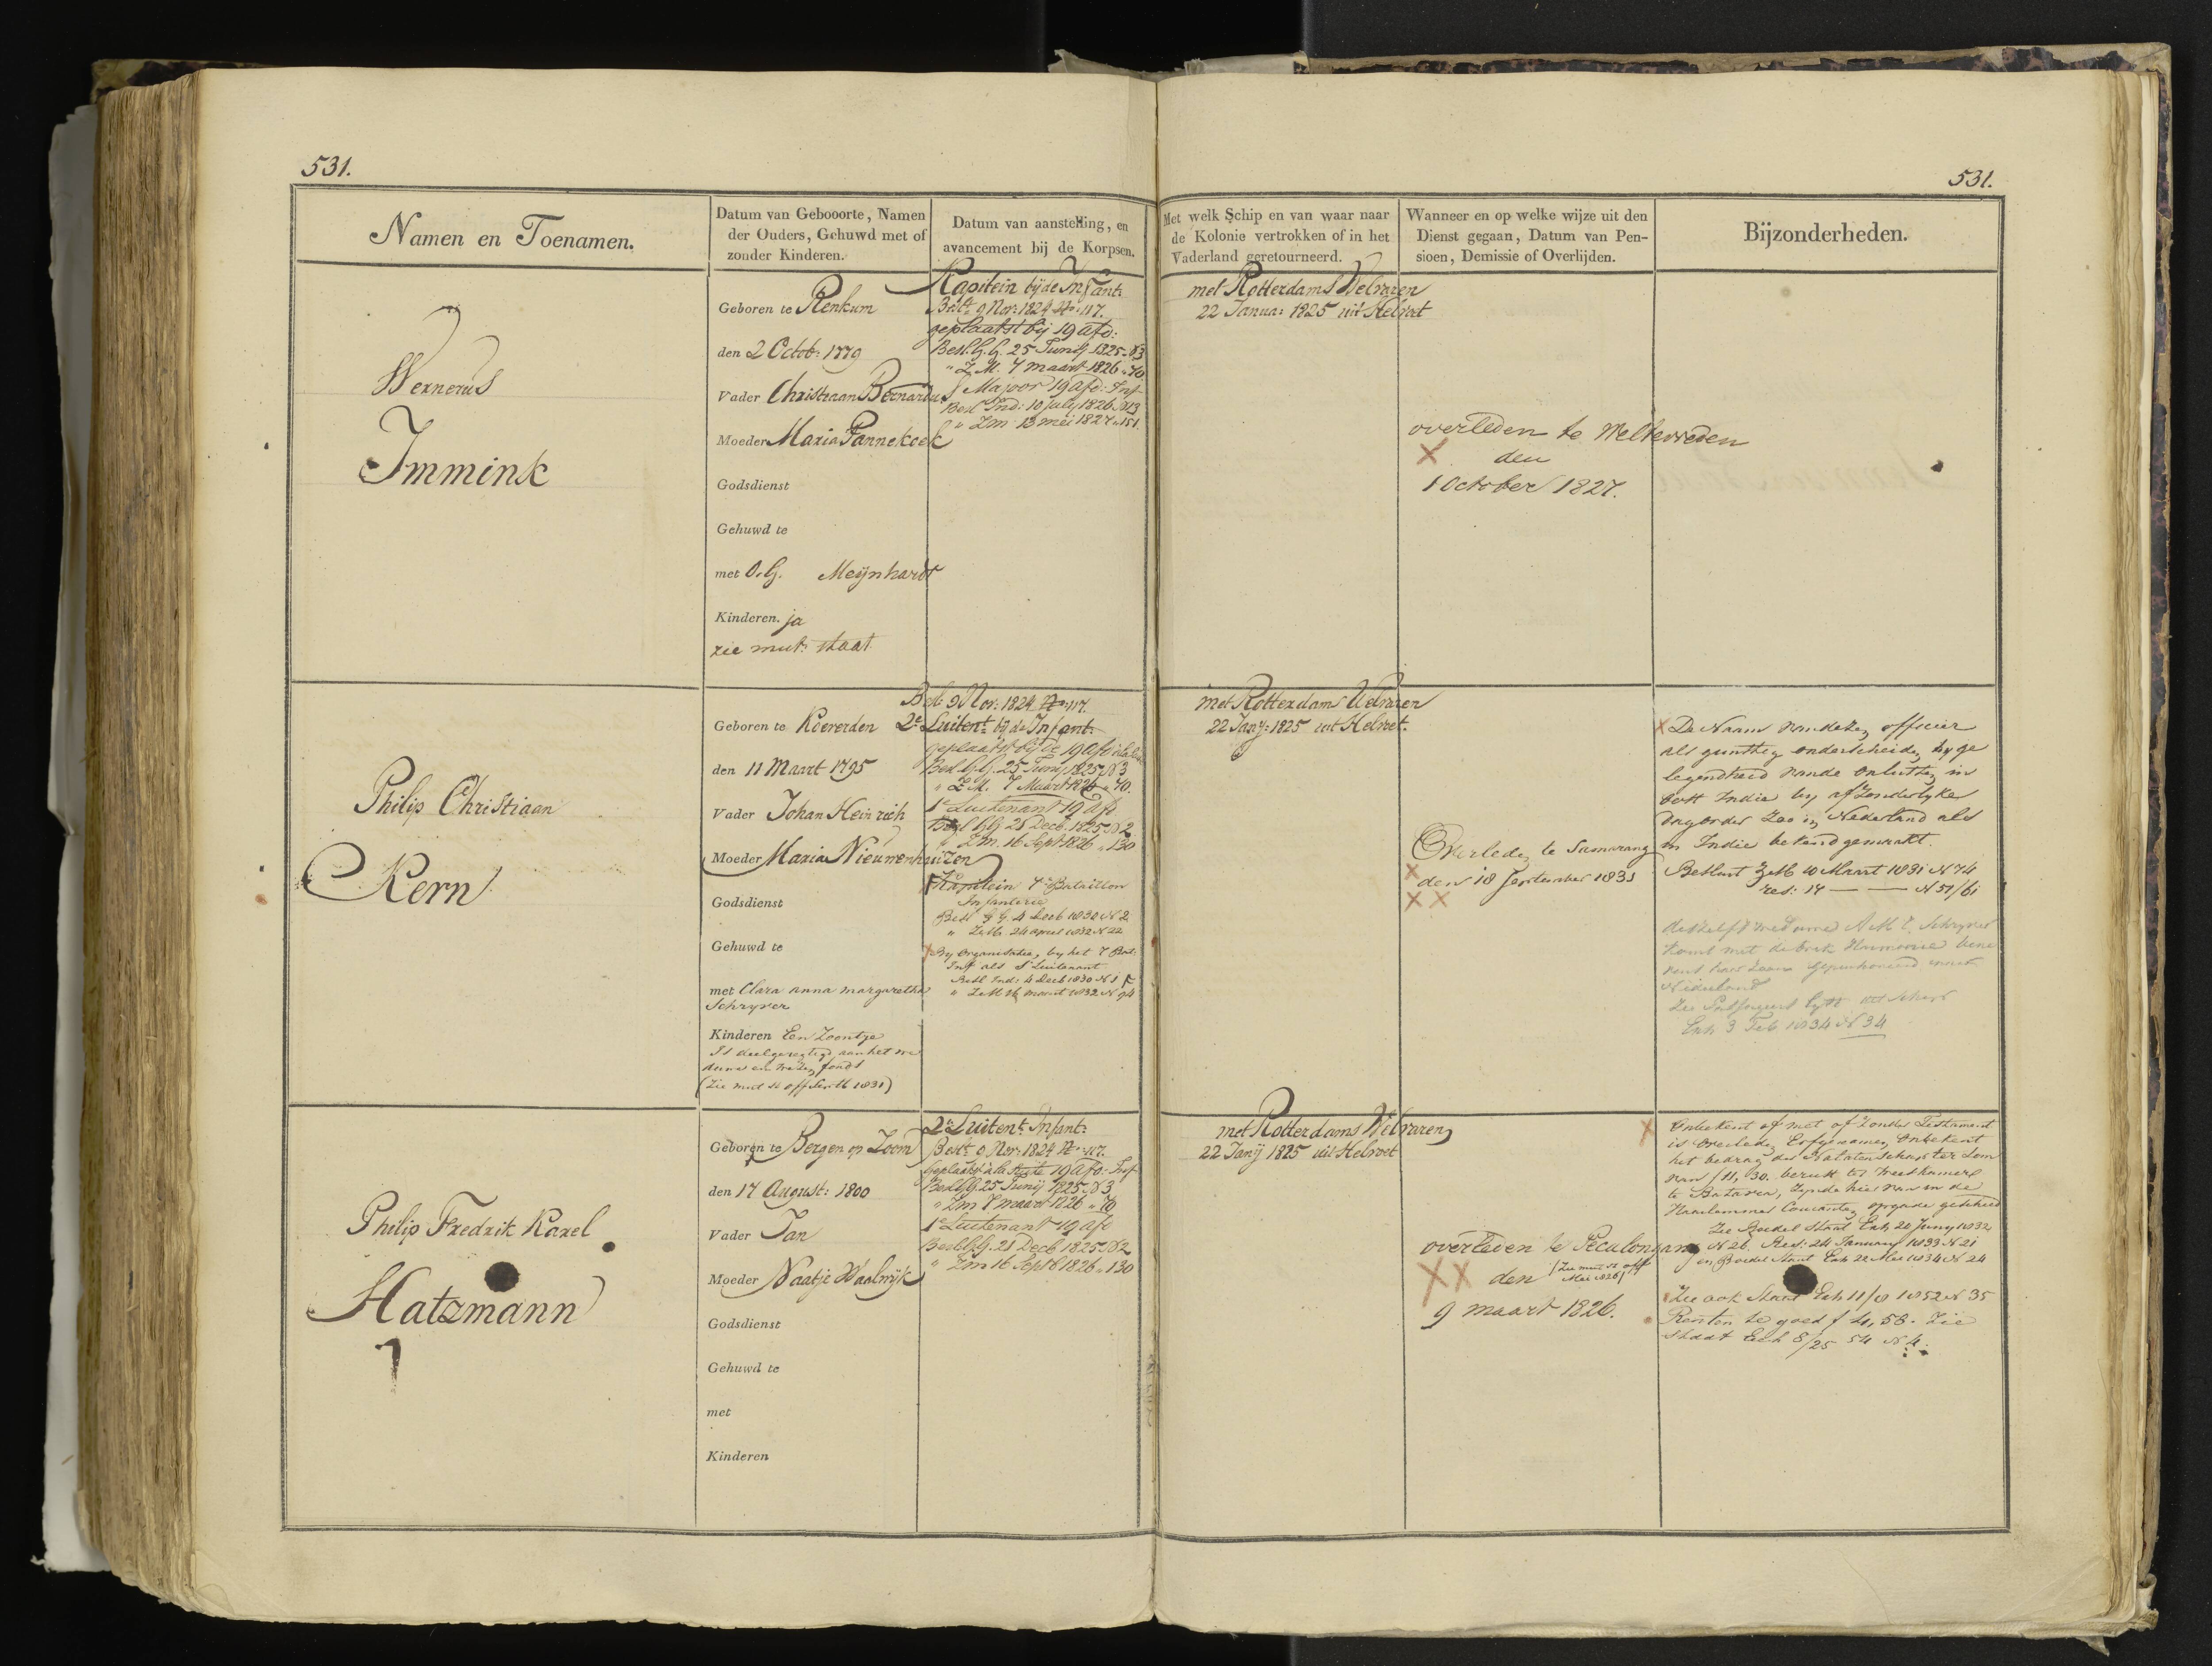 531.
531.
Namen en Toenamen.
Datum van Gebooorte, Namen
der Ouders, Gehuwd met of
zonder Kinderen.
Datum van aanstelling, en
avancement bij de Korpsen.
Met welk Schip en van waar naar
de Kolonie vertrokken of in het
Vaderland geretourneerd.
Wanneer en op welke wijze uit den
Dienst gegaan, Datum van Pen-
sioen, Demissie of Overlijden.
Bijzonderheden.
Wernerus
Immink
Geboren te Renkum
den 2 Octob: 1779
Vader Christiaan Bernardus
Moeder Maria Pannekoek
Godsdienst
Gehuwd te
met O.G. Meijnhardt
Kinderen. ja
zie mut: staat
Kapitein bij de Infant:
Beslt 9 Nov: 1824 No 117.
geplaatst bij 19 afd:
Besl. G.G. 25 Junij 1825 N3
" Z.M. 7 maart 1826 " 70
Majoor 19 afd: Inf
Besl Ind: 10 july 1826 N 13
" Zm 13 mei 1827 " 151.
met Rotterdams Welvaren
22 Janua: 1825 uit Helvoet
overleden te Weltevreden
den
1 October 1827.
Philip Christiaan
Kern
Geboren te Koevorden
den 11 Maart 1795
Vader Johan Heinrich
Moeder Maria Nieuwenhuizen
Godsdienst
Gehuwd te
met Clara anna margaretha
Schryver
Kinderen Een Zoontje
Is deelgeregtigd aan het we
duwe en weezen fonds
(Zie mut st off 1831)
Bslt 9 Nov: 1824 No 117.
2e Luitent bij de Infant:
geplaatst bij de 19 afd
Besl. G.G. 25 Junij 1825 N3
" Z.M. 7 Maart 1826 " 70.
1e Luitenant 19 afd
Besl GG 21 Decb 1825 N2
" Zm. 16 Sept 1826 " 130
Kapitein 7e Bataillon
Infanterie
Besl G G. 4 Decb 1830 N 2
" ZM. 24 april 1832 N 22
By Organisatie, by het 7 Bat:
Inf als 1e Luitenant
Besl Ind: 4 Decb 1830 N 1
" Z.M 16 maart 1832 N 94
met Rotterdams Welvaren
22 Janij: 1825 uit Helvoet.
Overleden te Samarang
den 18 September 1831
De Naam van dezen officier
als gunstig onderscheiden by ge
legendheid van de onlusten in
Oost Indie by afzonderlyke
dagorder Zoo in Nederland als
in Indie bekend gemaakt.
Besluit ZM 10 Maart 1831 N 74
res: 17 — — N 51/61
deszelfs weduwe Schryver
komt met de brik Harmonie bene
vens haar Zoon gepensioneerd naar
Nederland
Exh 3 Feb 1834 N 34
Philip Fredrik Karel
Hatzmann
Geboren te Bergen op Zoom
den 17 August: 1800
Vader Jan
Moeder Naatje Waalwijk
Godsdienst
Gehuwd te
met
Kinderen
2e Luitent Infant:
Beslt 9 Nov: 1824 No 117.
Geplaatst a la suite 19 afd: Inf
Besl GG. 25 Junij 1825 N3
" Zm 7 maart 1826 " 70
1e Luitenant 19 afd
Besl GG. 21 Decb 1825 N2
" Zm 16 Septb 1826 " 130
met Rotterdams Welvaren
22 Janij 1825 uit Helvoet
overleden te Pecalongang
den (Zie mut st off
Mei 1826)
9 maart 1826.
Onbekent of met of zonder Testament
is overleden, Erfgenamen, Onbekent
het bedrag der Nalatenschap ter Som
van f 11,30. berust ter Weeskamer
te Batavia, Zynde hier van in de
Haarlemmer Courant opgave geschied
Zie Boedel Staat Exh 20 Juny 1832
N 26. Res: 24 January 1833 N 21
en Boedel Staat Exh 22 Mei 1834 N 24
Zie ook Staat Exh 11/8 1852 N 35
Renten te goed f 4,58. Zie
Staat Exh 8/25 54 N 4.